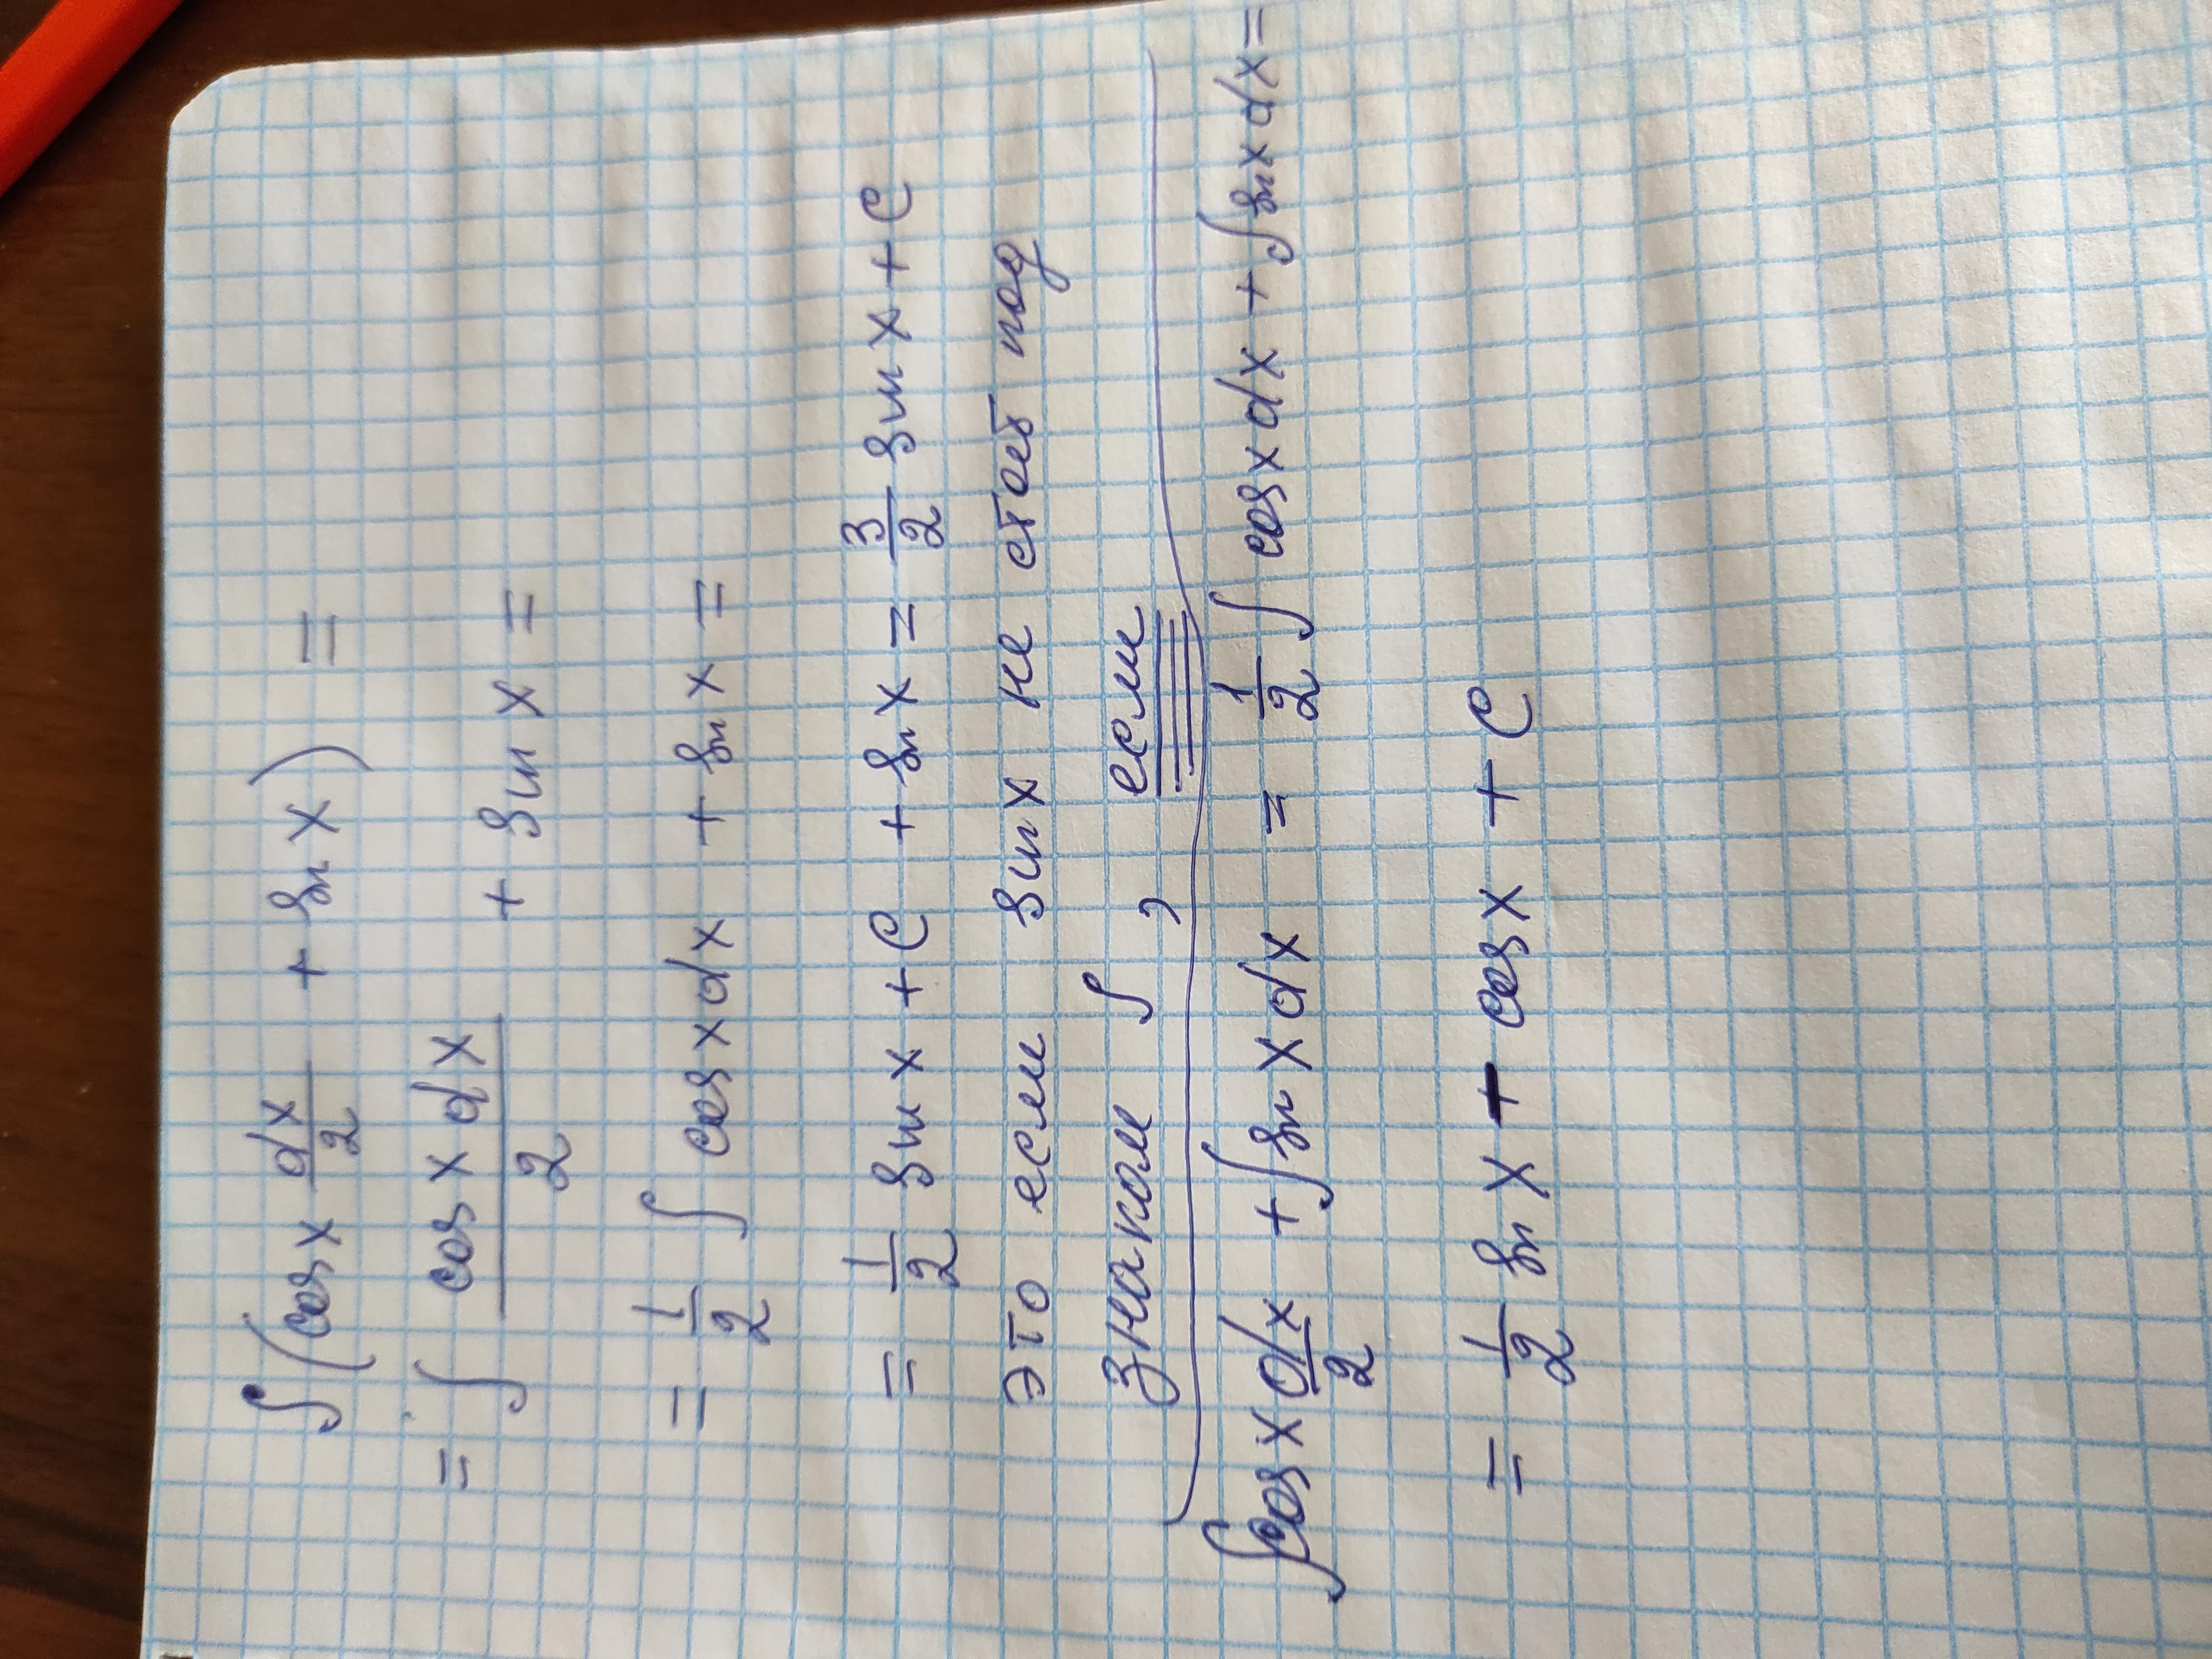 ∫(cosx dx/2 + sinx) =
= ∫ cosxdx/2 + sinx =
= 1/2 ∫ cosxdx + sinx =
= 1/2 sinx + C + sinx = 3/2 sinx + C
это если sinx не стоит под
знаком ∫, если
∫cosx dx/2 + ∫sinxdx = 1/2 ∫ cosxdx + ∫sinxdx =
= 1/2 sinx - cosx + C